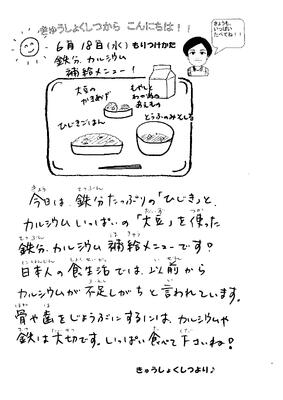 きゅうしょくしつから こんにちは！！
きょうも、
いっぱい
たべてね！！
6月18日(水) もりつけかた
鉄分 カルシウム
補給メニュー！
大豆の
かきあげ
もやしと
わかめの
あえもの
とうふのみそしる
ひじきごはん
今日は、鉄分たっぷりの「ひじき」と、
カルシウムいっぱいの「大豆」を使った
鉄分、カルシウム補給メニューです？
日本人の食生活では、以前から
カルシウムが不足しがちと言われています。
骨や歯をじょうぶにするには、カルシウムや
鉄は大切です。いっぱい食べて下さいね？
きゅうしょくしつより♪